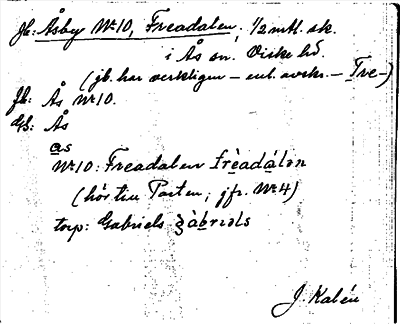 Jb: Åsby Nr 10, Freadalen, 1/2 mtl. sk.
i Ås sn. Viske hd.
(jb. har verkligen – enl. avskr. – Tre-)
Jb: Ås Nr 10.
Gb: Ås
as
Nr 10: Freadalen frèadàlən
(hör till Parten, jfr. Nr 4)
torp: Gabriels gàbriəls
J. Kalén